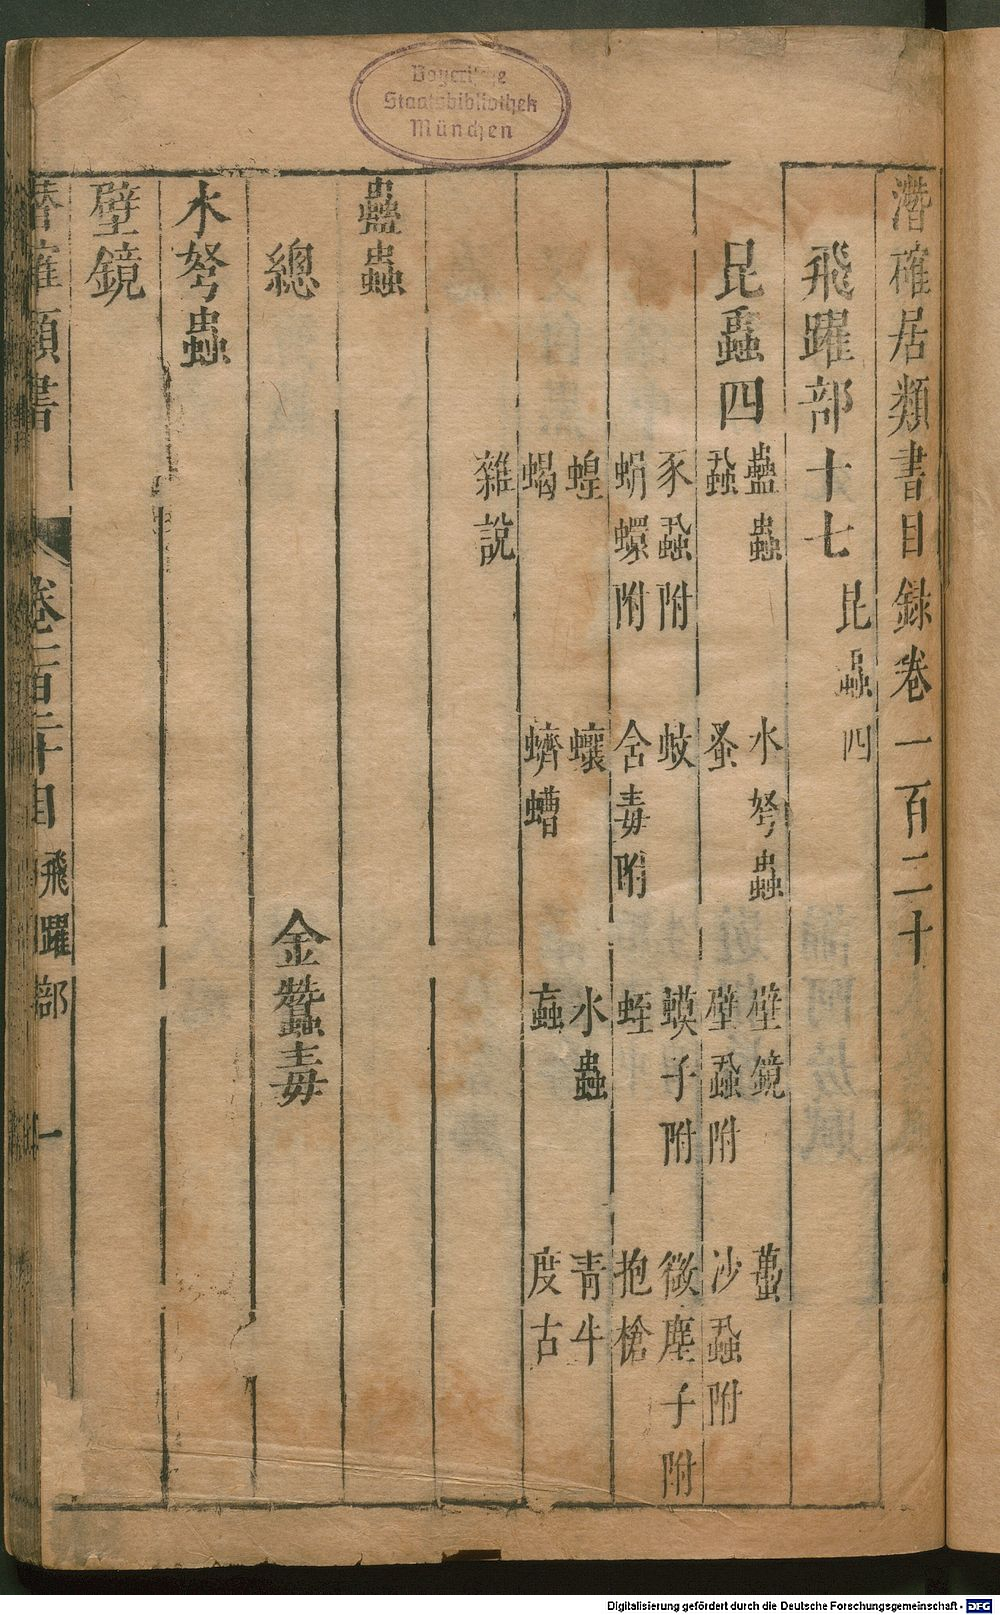 Bayerische
Staatsbibliothek
München
潛確居類書目録卷一百二十
飛躍部十七 昆蟲四
昆蟲四
蠱蟲 水弩蟲 壁鏡 蠆
蝨 蚤 壁蝨附 沙蝨附
豕蝨附 蚑 蟆子附 微塵子附
蜎蠉附 含毒附 蛭 抱槍
蝗 蠰 水蟲 青牛
蝎 蠐螬 蝱 度古
雜說
蠱蟲
總 金蠶毒
水弩蟲
壁鏡
潛確類書 卷一百二十目 飛躍部 一
Digitalisierung gefördert durch die Deutsche Forschungsgemeinschaft - DFG